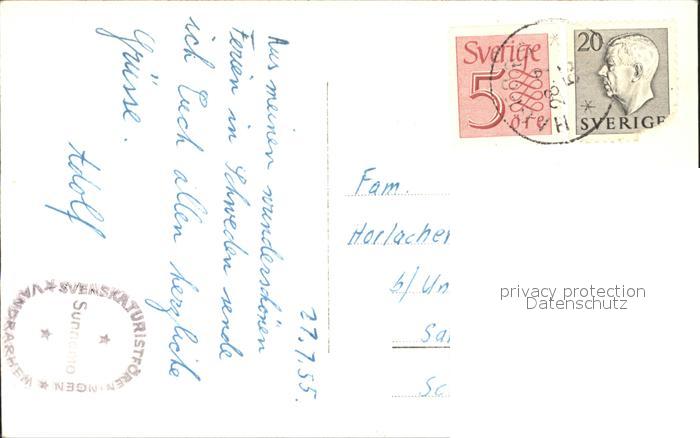 27.7.55.
Aus meinen wunderschönen
Ferien in Schweden sende
ich Euch allen herzliche
Grüsse.
Adolf
Fam.
Horlacher
b/ Un
Sa
Sc
Sverige
5
öre
20
SVERIGE
SVENSKA TURISTFÖRENINGEN
VANDRARHEM
Sunnemo
privacy protection
Datenschutz